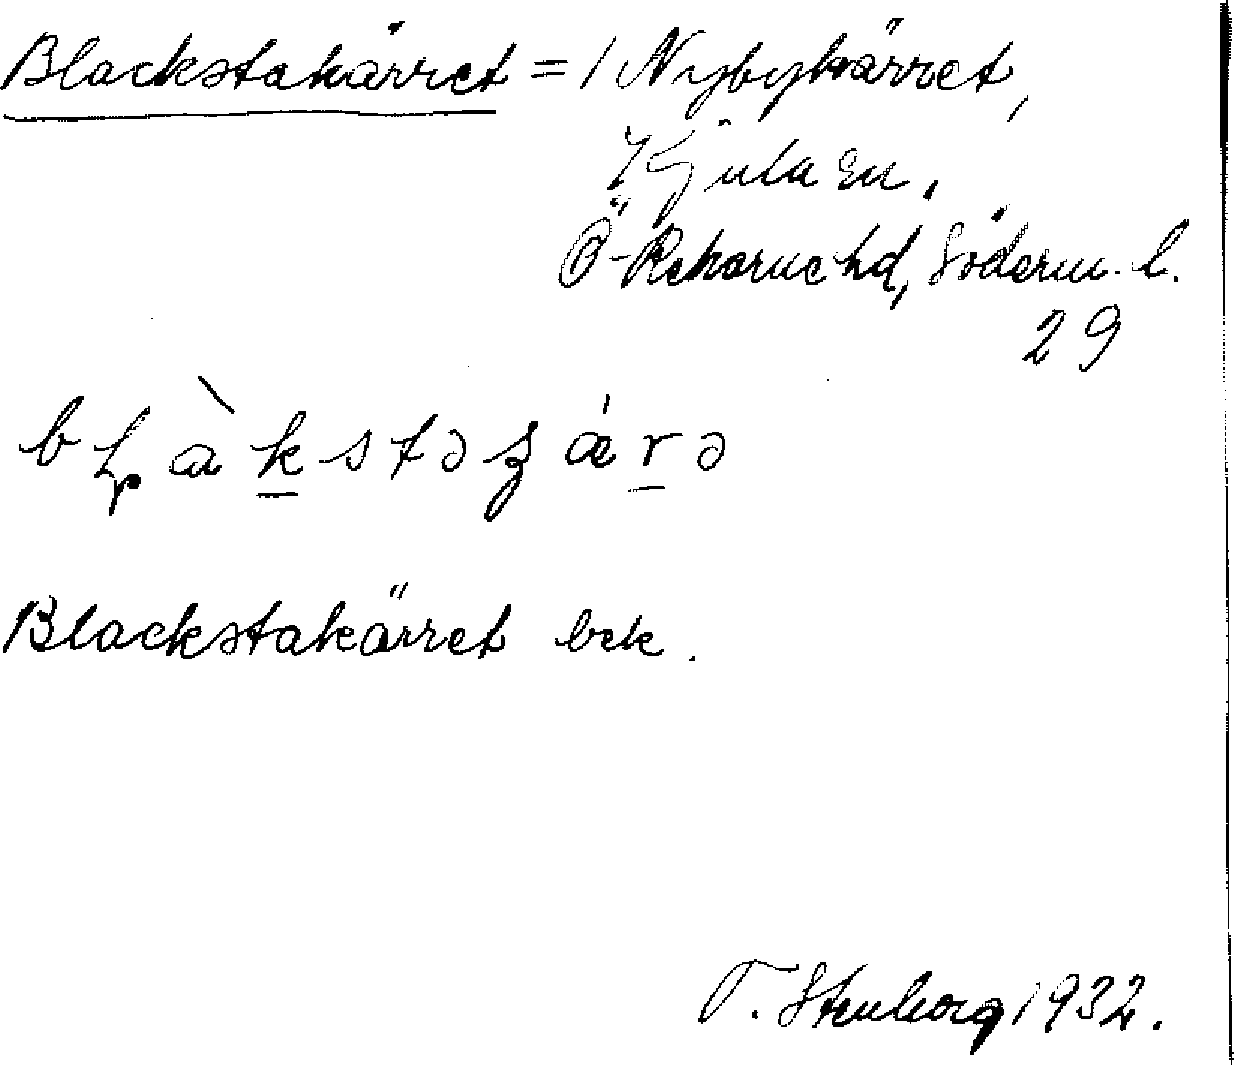 Blackstakärret = / Nybykärret,
Kjula sn,
Ö-Rekarne hd, Söderm. l.
29
Blackstakärret bek.
T. Stenborg 1932.